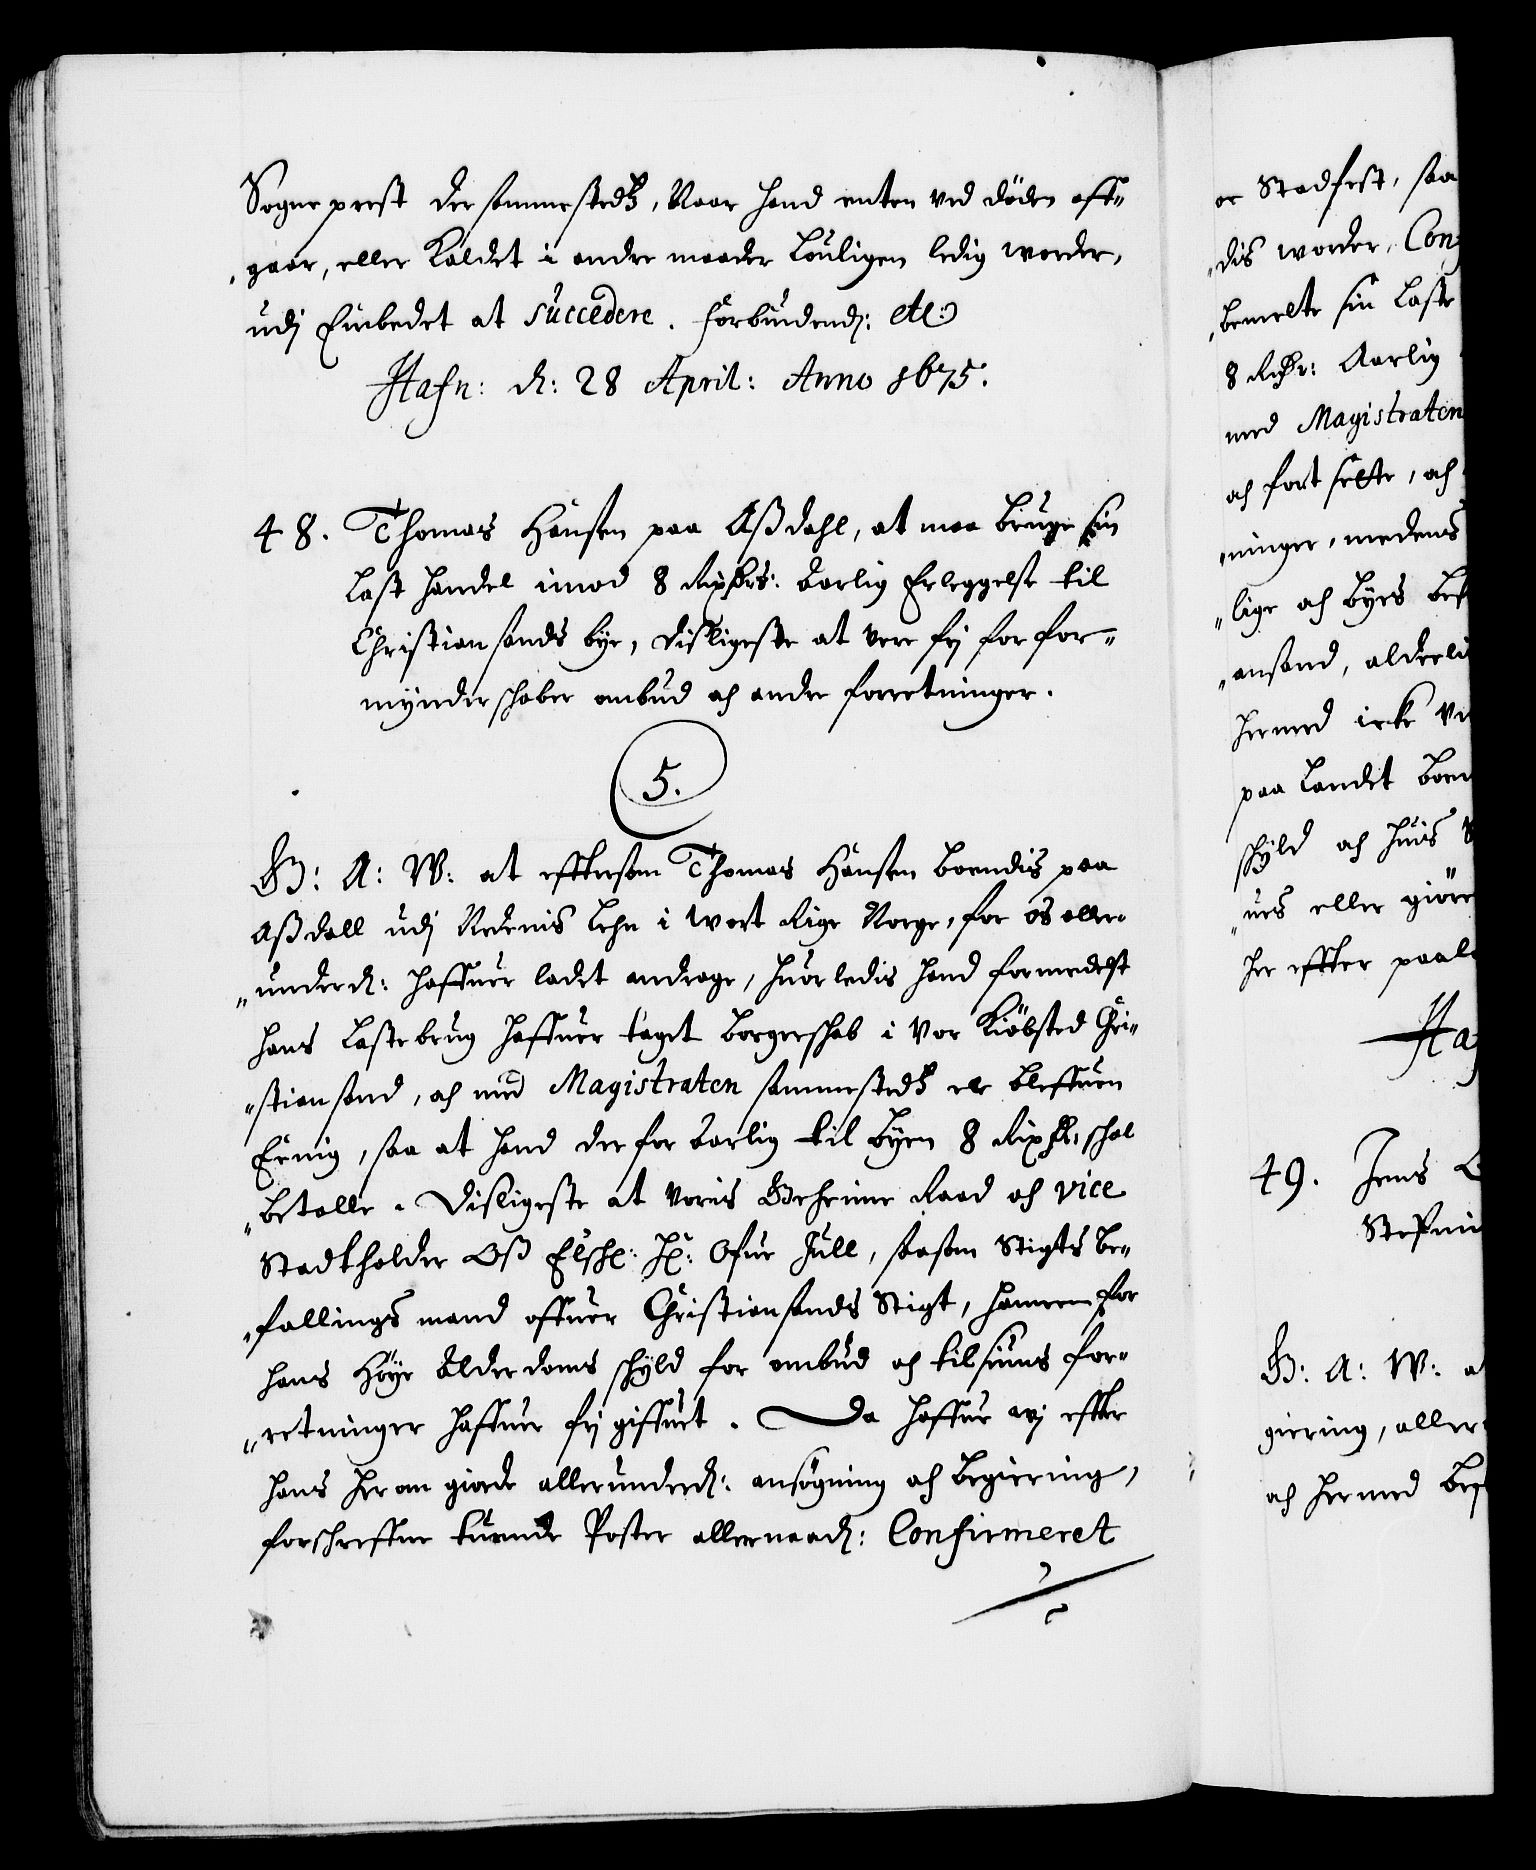 Sogneprest der sammestedtz, Naar hand enten ved døden aff-
gaar, eller Kaldet i andre maader Louligen ledig worder,
udj Embedet at succedere. Forbiudendj: etc:
Hafn: d: 28 April: Anno 1675.
48. Thomas Hansen paa Aßdahl, at maa bruge sin
Last handel imod 8 Rixdrs: Aarlig Erleggelse til
Christiansands bye, disligeste at vere frj for for-
mynderschaber ombud och andre forretninger.
5.
G: A: W: at efftersom Thomas Hansen boendis paa
Aßdall udj Nedenis Lehn i wort Rige Norge, for os aller-
underd: haffuer ladet andrage, huorledis hand formedelst
hans Lastebrug haffuer taget borgerschab i Vor Kiøbsted Chri-
stiansand, och med Magistraten sammestedtz er bleffuen
Eenig, saa at hand derfor Aarlig til byen 8 Rixdr, schal
betalle. Disligeste at Voris Geheime Raad och Vice
Stadtholder Oß Elsche: Hr: Ofue Jull, saasom Stigts be-
fallings mand offuer Christiansands Stigt, hannem for
hans Høye Alderdoms schyld for ombud och tilsiuns for-
retninger haffuer frj giffuet. Da haffue wj effter
hans herom giorde allerunderd: ansøgning och begiering,
forschreffne tuende Poster allernaad: Confirmeret
oc Stadfest, saa
dis worder, Con
bemelte sin Laste
8 Rixdr: Aarlig
med Magistraten
och fortsette, och
ninger, medens
lige och byes
ansand, alderli
hermed icke
paa Landet boen
schyld och huis
ues eller giøre
her effter
Ha
49. Jens
G: A: W: a
giering, aller
och hermed